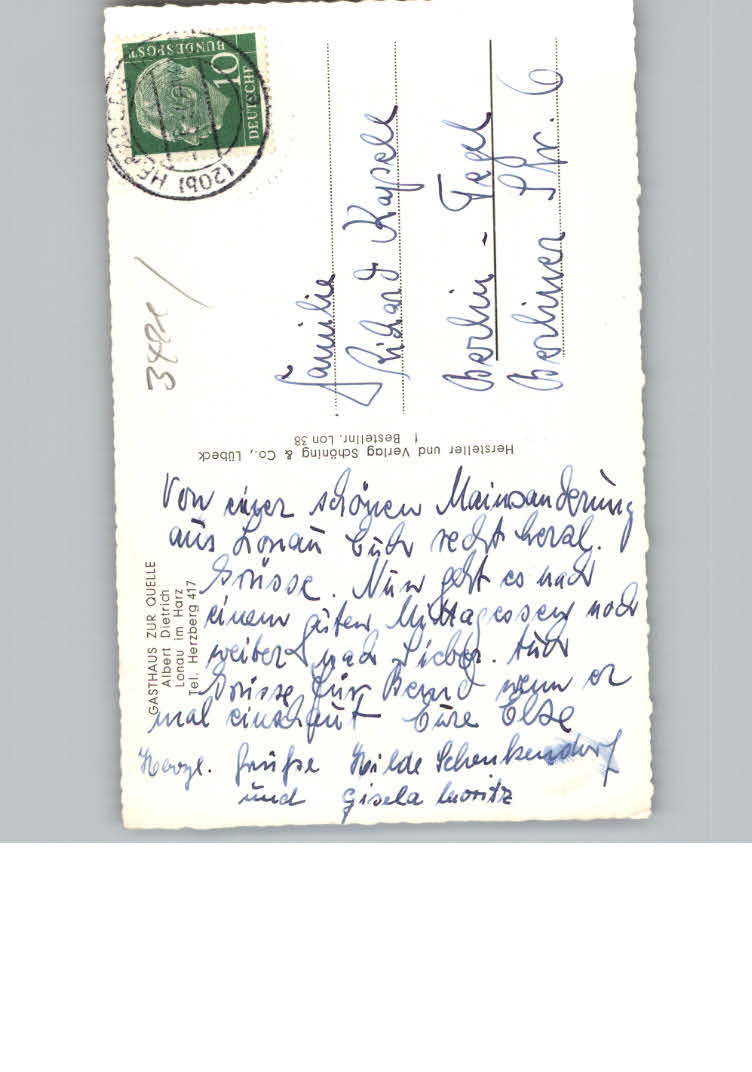 GASTHAUS ZUR QUELLE
Albert Dietrich
Lonau im Harz
Tel. Herzberg 417
Von einer schönen Maiwanderung
aus Lonau Euch recht herzl.
Grüsse. Nun geht es nach
einem guten Mittagessen noch
weiter nach Sieber. Auch
Grüsse für Bernd wenn er
mal einschaut Eure Else
Herzl. Grüße Hilde Schenkendorf
und Gisela Moritz
Hersteller und Verlag Schöning & Co., Lübeck
1 Bestellnr. Lon 38
DEUTSCHE
BUNDESPOST
10
(20b) HERZBERG
Familie
Richard Kapell
Berlin - Tegel
Berliner Str. 6